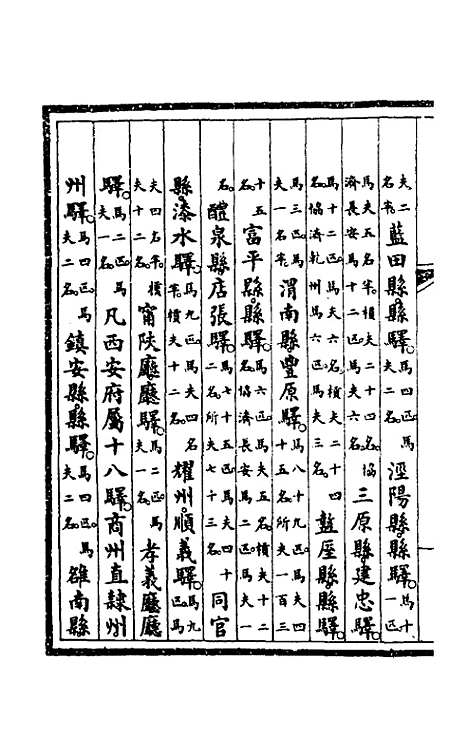 夫二名半。藍田縣縣驛。馬四匹。馬夫二名。涇陽縣縣驛。馬十一匹。
馬夫五名半。槓夫二十四名。協濟長安馬十二匹。馬夫六名。三原縣建忠驛。
馬十二匹。馬夫六名。槓夫二十四名。協濟乾州馬六匹。馬夫三名。盩厔縣縣驛。
馬三匹。馬夫一名半。渭南縣豐原驛。馬八十九匹。馬夫四十五名。所夫一百三
十五名。富平縣縣驛。馬六匹。馬夫五名。槓夫十二名。協濟長安馬二匹。馬夫一
名。醴泉縣店張驛。馬七十五匹。馬夫四十二名。所夫七十三名。同官
縣漆水驛。馬九匹。馬夫四名半。槓夫十二名。耀州順義驛。馬九匹。馬
夫四名半。槓夫十二名。甯陜廳廳驛。馬二匹。馬夫一名。孝義廳廳
驛。馬二匹。馬夫一名。凡西安府屬十八驛。商州直隸州
州驛。馬四匹。馬夫二名。鎮安縣縣驛。馬四匹。馬夫二名。雒南縣